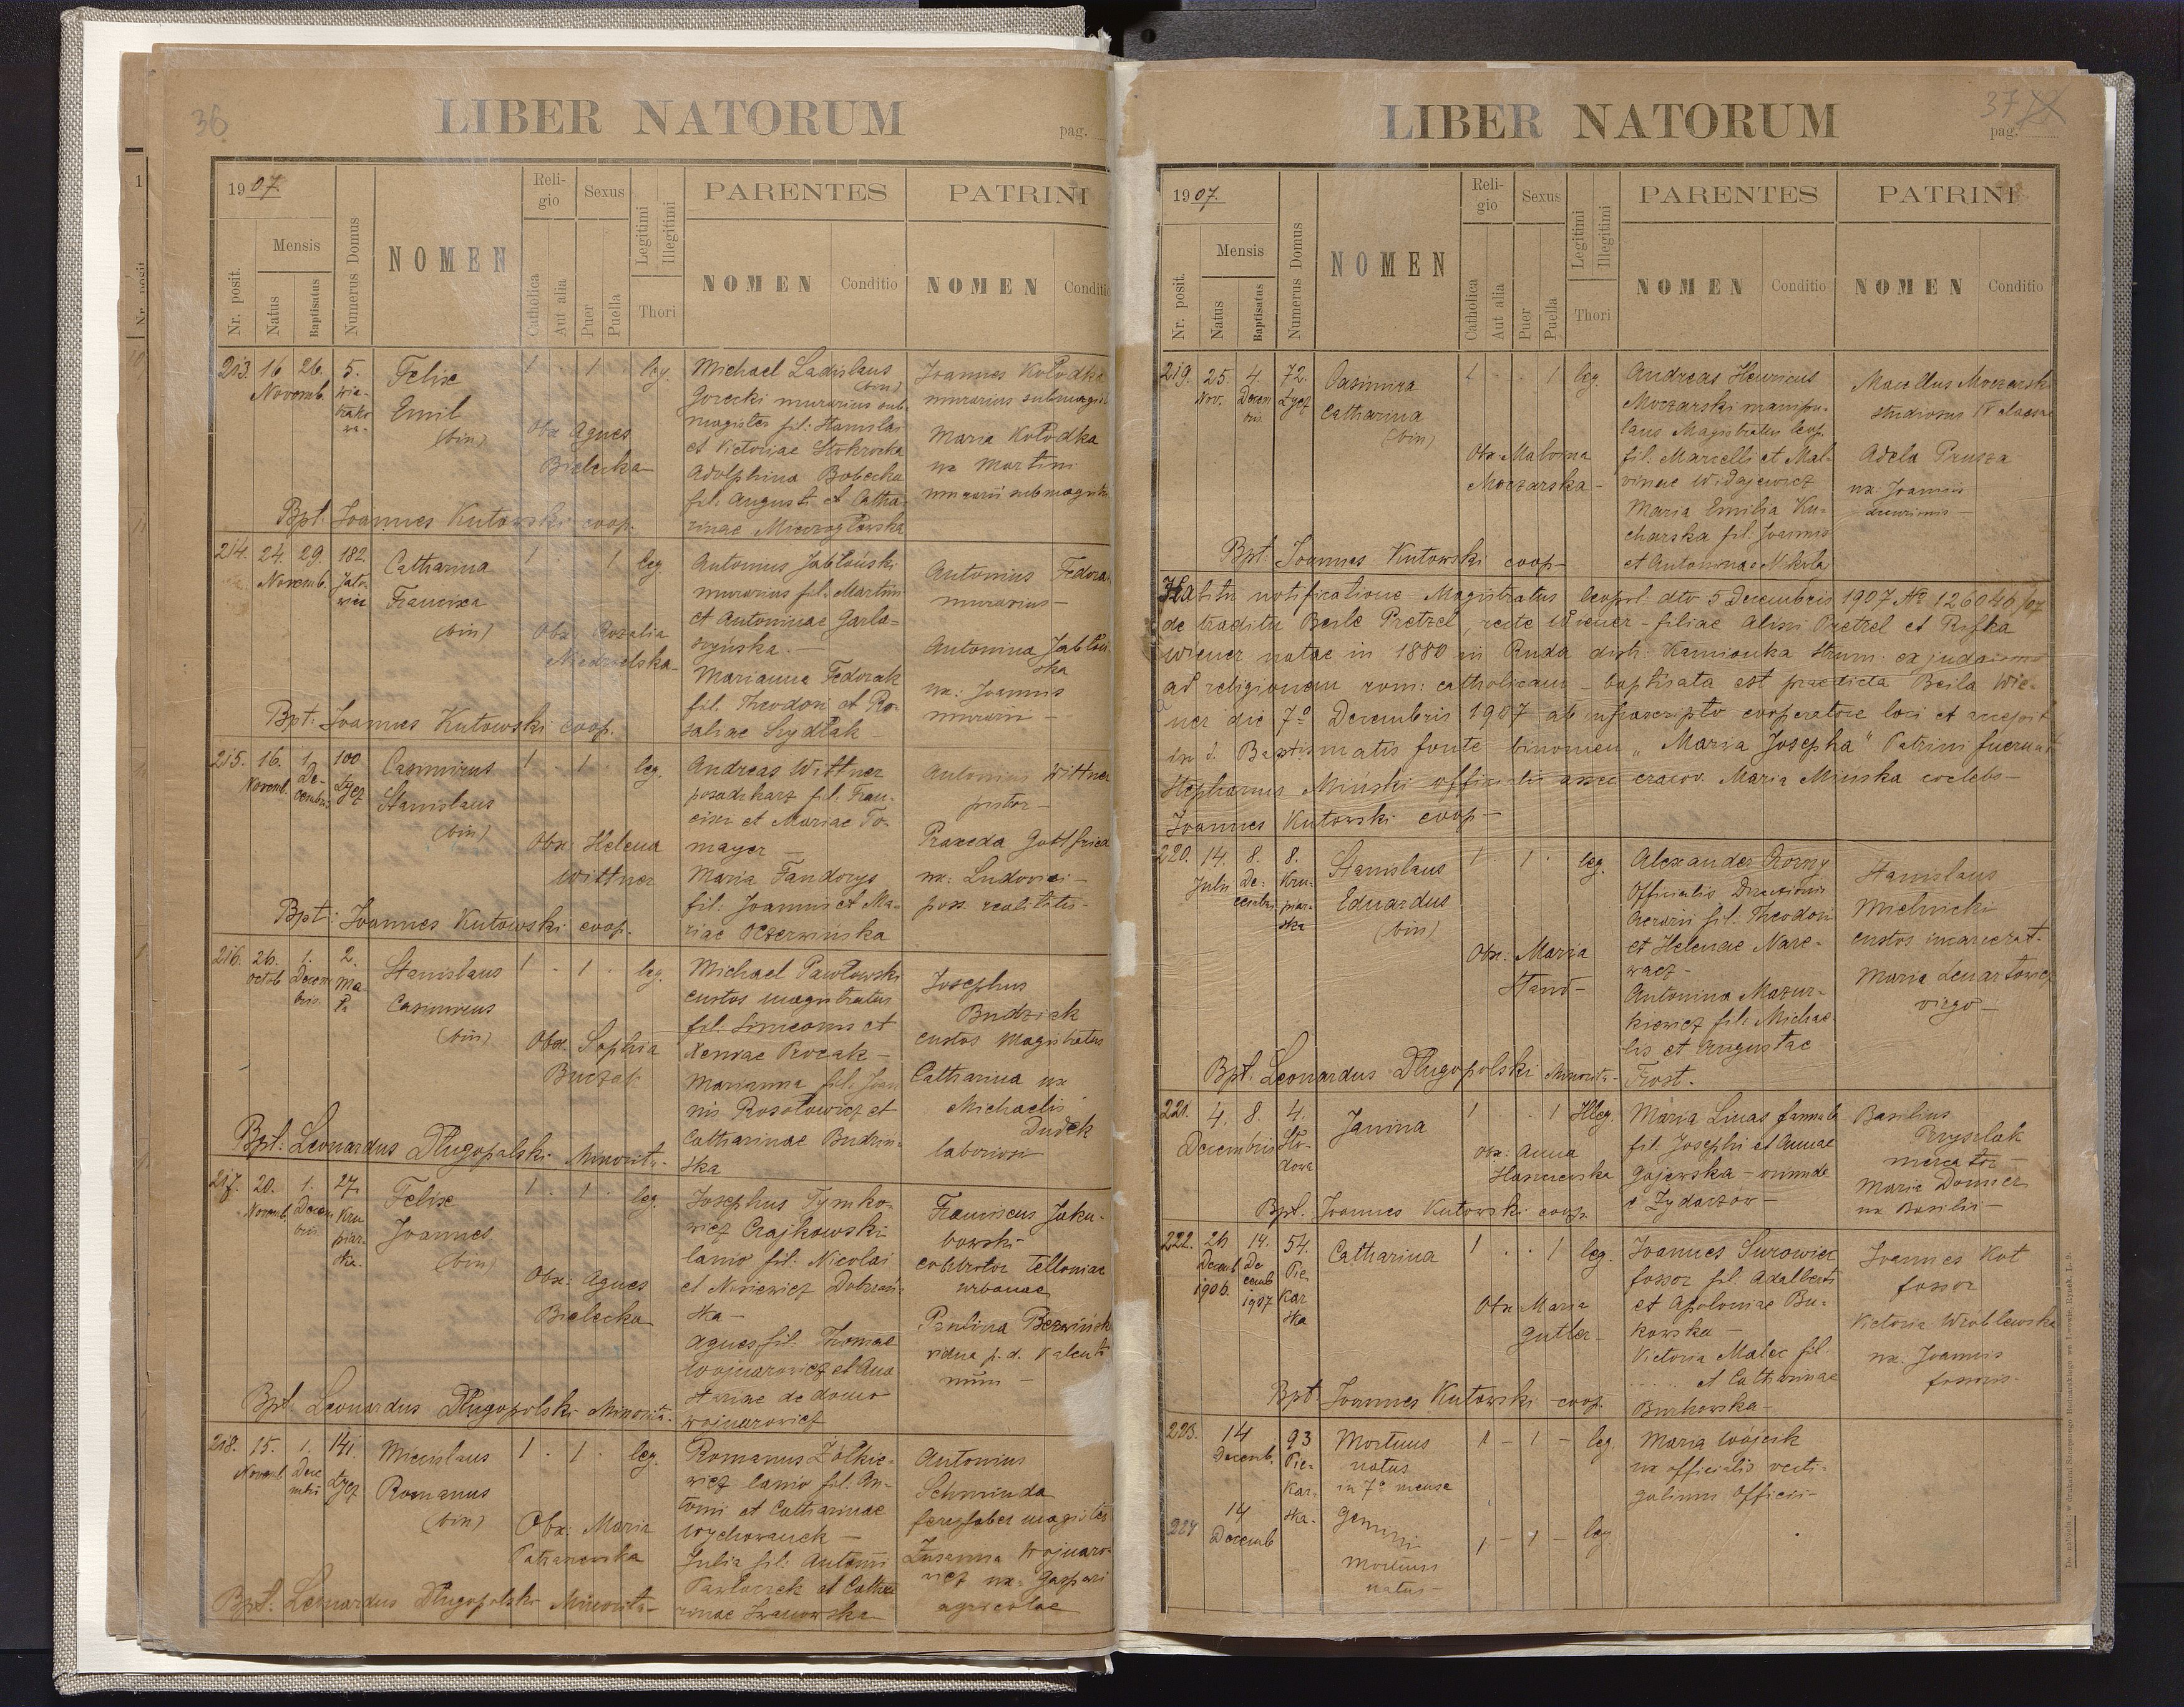 36
LIBER NATORUM
pag.
1907.
Nr. posit.
Mensis
Natus
Baptisatus
Numerus Domus
NOMEN
Reli-
gio
Catholica
Aut alia
Sexus
Puer
Puella
Legitimi
Illegitimi
Thori
PARENTES
NOMEN
Conditio
PATRINI
NOMEN
Conditio
213. 16 26. 5.
Novemb.
Felix
Emil
(bin)
1 . 1 . leg.
Obx Agnes
Bielecka
Michael Ladislaus
(bin)
Gorecki murarius sub-
magister fil: Stanislai
et Victoriae
Adolphina Bobecka
fil. Augusti et Catha-
rinae
Joannes Kołodka
murarius submagis
Maria Kołodka
ux Martini
murarii submagistri
Bpt. Joannes Kutowski coop.
214. 24. 29. 182.
Novemb. Jało-
wiec
Catharina
Francisca
(bin)
1 . . 1 leg
Obx. Rozalia
Niedzielska
Antonius Jabłoński
murarius fil. Martini
et Antoninae Garla-
szyńska. —
Marianna Fedorak
fil. Theodori et Ro-
saliae Szydłak —
Antonius Fedorak
murarius —
Antonina Jabłoń
ska
ux: Joannis
murarii —
Bpt: Joannes Kutowski coop.
215. 16. 1. 100
Novemb. De-
cembris Łycz
Casimirus
Stanislaus
(bin)
1 . 1 . leg.
Obx Helena
Wittner
Andreas Wittner
posadzkarz fil. Fran-
cisci et Mariae To-
mayer —
Maria Fandorys
fil. Joannis et Ma-
riae Oczerwińska
Antonius Wittner
pistor —
Praxeda Gottfried
ux: Ludovici —
poss. realitatis -
Bpt: Joannes Kutowski coop.
216. 26. 1. 2.
Octob Decem
bris. Ma-
ła
Stanislaus
Casimirus
(bin)
1 . 1 . leg.
Obx. Sophia
Buczek
Michael Pawłowski
custos magistratus
fil. Simeonis et
Xeniae Procak —
Marianna fil. Joan
nis Rosołowicz et
Catharinae Budziń-
ska
Josephus
Budziak
custos Magistratus
Catharina ux
Michaelis
Dudek
laborioris
Bpt: Leonardus Długopolski Minorita -
217. 20. 1. 27.
Novemb. Decem
bris Kru
piar-
ska.
Felix
Joannes
(bin)
1 . 1 . leg.
Obx: Agnes
Bielecka
Josephus Tymko-
wicz Czajkowski
lanio fil. Nicolai
et Nisiewicz Dobrzań-
ska —
Agnes fil. Thomae
Wojnarowicz et Ana
stasiae de domo
Wojnarowicz
Franciscus Jaku-
bowski
Telloniae
urbanae
Paulina
vidua p. d. Valenti
num —
Bpt Leonardus Długopolski Minorita -
218. 15. 1. 141
Novemb. Dece
mbris Łycz
Miecislaus
Romanus
(bin)
1 . 1 . leg.
Obx: Maria
Romanus Żółkie-
wicz lanio fil. An-
tonii et Catharinae
Wychowanek —
Julia fil. Antonii
et Catha
rinae Iwanowska
Antonius
Schminda
magister
Zusanna Wojnaro-
wicz ux: Gaspari
agricolae
Bpt: Leonardus Długopolski Minorita —
37
LIBER NATORUM
pag.
1907.
Nr. posit.
Mensis
Natus
Baptisatus
Numerus Domus
NOMEN
Reli-
gio
Catholica
Aut alia
Sexus
Puer
Puella
Legitimi
Illegitimi
Thori
PARENTES
NOMEN
Conditio
PATRINI
NOMEN
Conditio
219. 25. 4. 72
Nov. Decem
bris. Łycz
Casimira
Catharina
(bin)
1 . . 1 leg.
Obx Malvina
Moczarska -
Andreas Henricus
Moczarski manipu-
lans Magistratus leop.
fil. Marcelli et Mal-
vinae Widajewicz
Maria Emilia Ku-
charska fil. Joannis
et Antoninae Nikolai
Marcellus Moczarski
studiosus IV classae
Adela Prusza
ux Joannis
decurionis —
Bpt. Joannes Kutowski coop—
Habita notificatione Magistratus leopol. dto 5 Decembris 1907 No 126046/07
de traditu Beile Pretzel, recte Wiener - filiae Alizi Pretzel et Rifka
Wiener natae in 1880 in Ruda distr. Kamionka Strum: ex judaismo
ad religionem rom: catholicam - baptisata est praedicta Beila Wie-
ner die 7a Decembris 1907 ab infrascripto cooperatore loci et accepit
in S. Baptismatis fonte binomen „Maria Josepha" Patrini fuerunt
Stephanus Miński officialis assec cracov. Maria Mińska coelebs —
Joannes Kutowski coop —
220. 14. 8. 8.
Julii De-
cembris Kru-
piar-
ska
Stanislaus
Eduardus
(bin)
1 . 1 . leg.
Obx. Maria
Hand —
Alexander Rozny
Officialis Directionis
Aerarii fil. Theodori
et Helenae Nare-
wacz -
Antonina Mazur-
kiewicz fil. Michae
lis et Augustae
Frost.
Stanislaus
Mielnicki
custos incarcerat.
Maria Lenartowicz
virgo —
Bpt. Leonardus Długopolski Minorita -
221. 4. 8. 4.
Decembris Sto-
dowa
Janina
1 . . 1 Illeg.
obx: Anna
Maria Linas famula
fil. Josephi et Annae
Gajewska — oriunda
e Żydaczów —
Basilius
Pryszlak
mercator —
Maria Donner
ux Basilii —
Bpt. Joannes Kutowski coop.
222. 26 14. 54.
Decemb De
cemb
1906. 1907
Pie
kar
ska
Catharina
1 . . 1 leg.
Obx Maria
Gutler —
Joannes Surowiec
fossor fil. Adalberti
et Apoloniae Bu-
kowska —
Victoria Malec fil.
..... et Catharinae
Burkowska —
Joannes Kut
fossor
Victoria Wróblewska
ux. Joannis
fossoris.
Bpt Joannes Kutowski coop.
223. 14 93
Decemb. Pie-
kar-
ska.
Mortuus
natus
in 7o mense
1 - 1 - leg.
Maria Wójcik
ux officialis vecti-
galium officii —
224 14
Decemb
Gemini
mortuus
natus —
1 - 1 - leg.